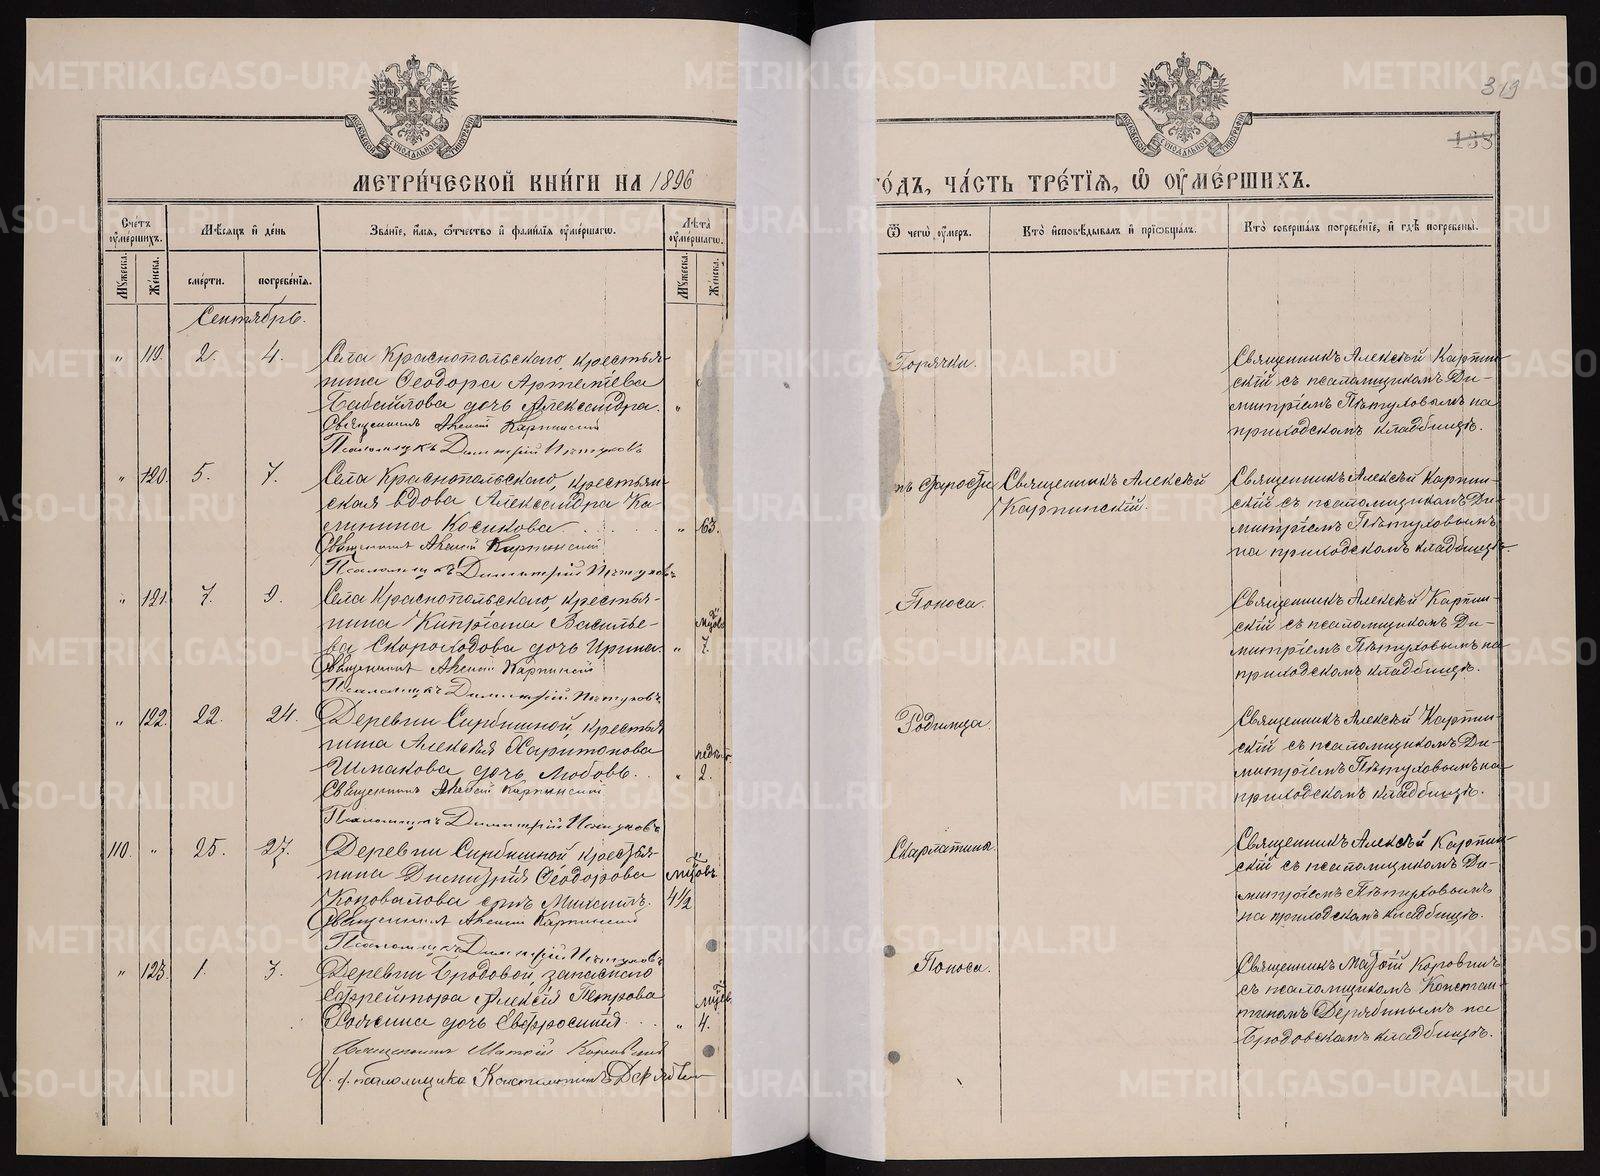 МЕТРИ́ЧЕСКОЙ КНИ́ГИ НА 1896
ГО́ДЪ, ЧА́СТЬ ТРЕ́ТІЯ, Ѿ ОУМЕ́РШИХЪ.
319
138
Сче́тъ оуме́ршихъ.
Мѣсяцъ и де́нь
Зва́ніе, и́мя, ѻ́тчество и фами́лія оуме́ршагѡ.
Лѣта̀ оуме́ршагѡ.
Ѿ чегѡ̀ оу́меръ.
Кто̀ исповѣ́дывалъ и пріѡбща́лъ.
Кто̀ соверша́лъ погребе́ніе, и гдѣ̀ погребены̀.
Му́жеска.
Же́нска.
сме́рти.
погребе́нія.
Му́жеска.
Же́нска.
Сентябрь.
" 119. 2. 4. Села Краснопольскаго, крестья-
нина Ѳеодора Артемiева
Бабайлова дочь Александра. "
Священникъ Алексій Карпинскій
Псаломщикъ Димитрій Пѣтуховъ
Горячки.
Священникъ Алексѣй Карпин-
скій съ псаломщикомъ Ди-
митріемъ Пѣтуховымъ на
приходскомъ кладбищѣ.
" 120. 5. 7. Села Краснопольскаго, крестьян-
ская вдова Александра Ка-
линина Косикова " 63.
Священникъ Алексій Карпинскій
Псаломщикъ Димитрій Пѣтуховъ
старости
Священникъ Алексѣй
Карпинскій.
Священникъ Алексѣй Карпин-
скій съ псаломщикомъ Ди-
митріемъ Пѣтуховымъ
на приходскомъ кладбищѣ.
" 121. 7. 9. Села Краснопольскаго, крестья-
нина Кипріана Василье-
ва Скороходова дочь Ирина. " 7.
Священникъ Алексій Карпинскій
Псаломщикъ Димитрій Пѣтуховъ
Поноса.
Священникъ Алексѣй Карпин-
скій съ псаломщикомъ Ди-
митріемъ Пѣтуховымъ на
приходскомъ кладбищѣ.
" 122. 22. 24. Деревни Сербишной, крестья
нина Алексѣя Харитонова
Шмакова дочь Любовь. " 2.
Священникъ Алексій Карпинскій
Псаломщикъ Димитрій Пѣтуховъ
Родимца.
Священникъ Алексѣй Карпин-
скій съ псаломщикомъ Ди-
митріемъ Пѣтуховымъ на
приходскомъ кладбищѣ.
110. " 25. 27. Деревни Сербишной крестья-
нина Димитрія Ѳеодорова мѣсяцовъ
Коновалова сынъ Михаилъ. 4½
Священникъ Алексій Карпинскій
Псаломщикъ Димитрій Пѣтуховъ
Скарлатина.
Священникъ Алексѣй Карпин-
скій съ псаломщикомъ Ди-
митріемъ Пѣтуховымъ
на приходскомъ кладбищѣ.
" 123. 1. 3. Деревни Бродовой, запаснаго
Ефрейтора Алексія Петрова
дочь Евфросинія. " 4.
Священникъ Матѳій Коровинъ
И. д. псаломщика Константинъ Дерябинъ
Поноса.
Священникъ Матѳій Коровинъ
съ псаломщикомъ Констан-
тиномъ Дерябинымъ на
Бродовскомъ кладбищѣ.
METRIKI.GASO-URAL.RU